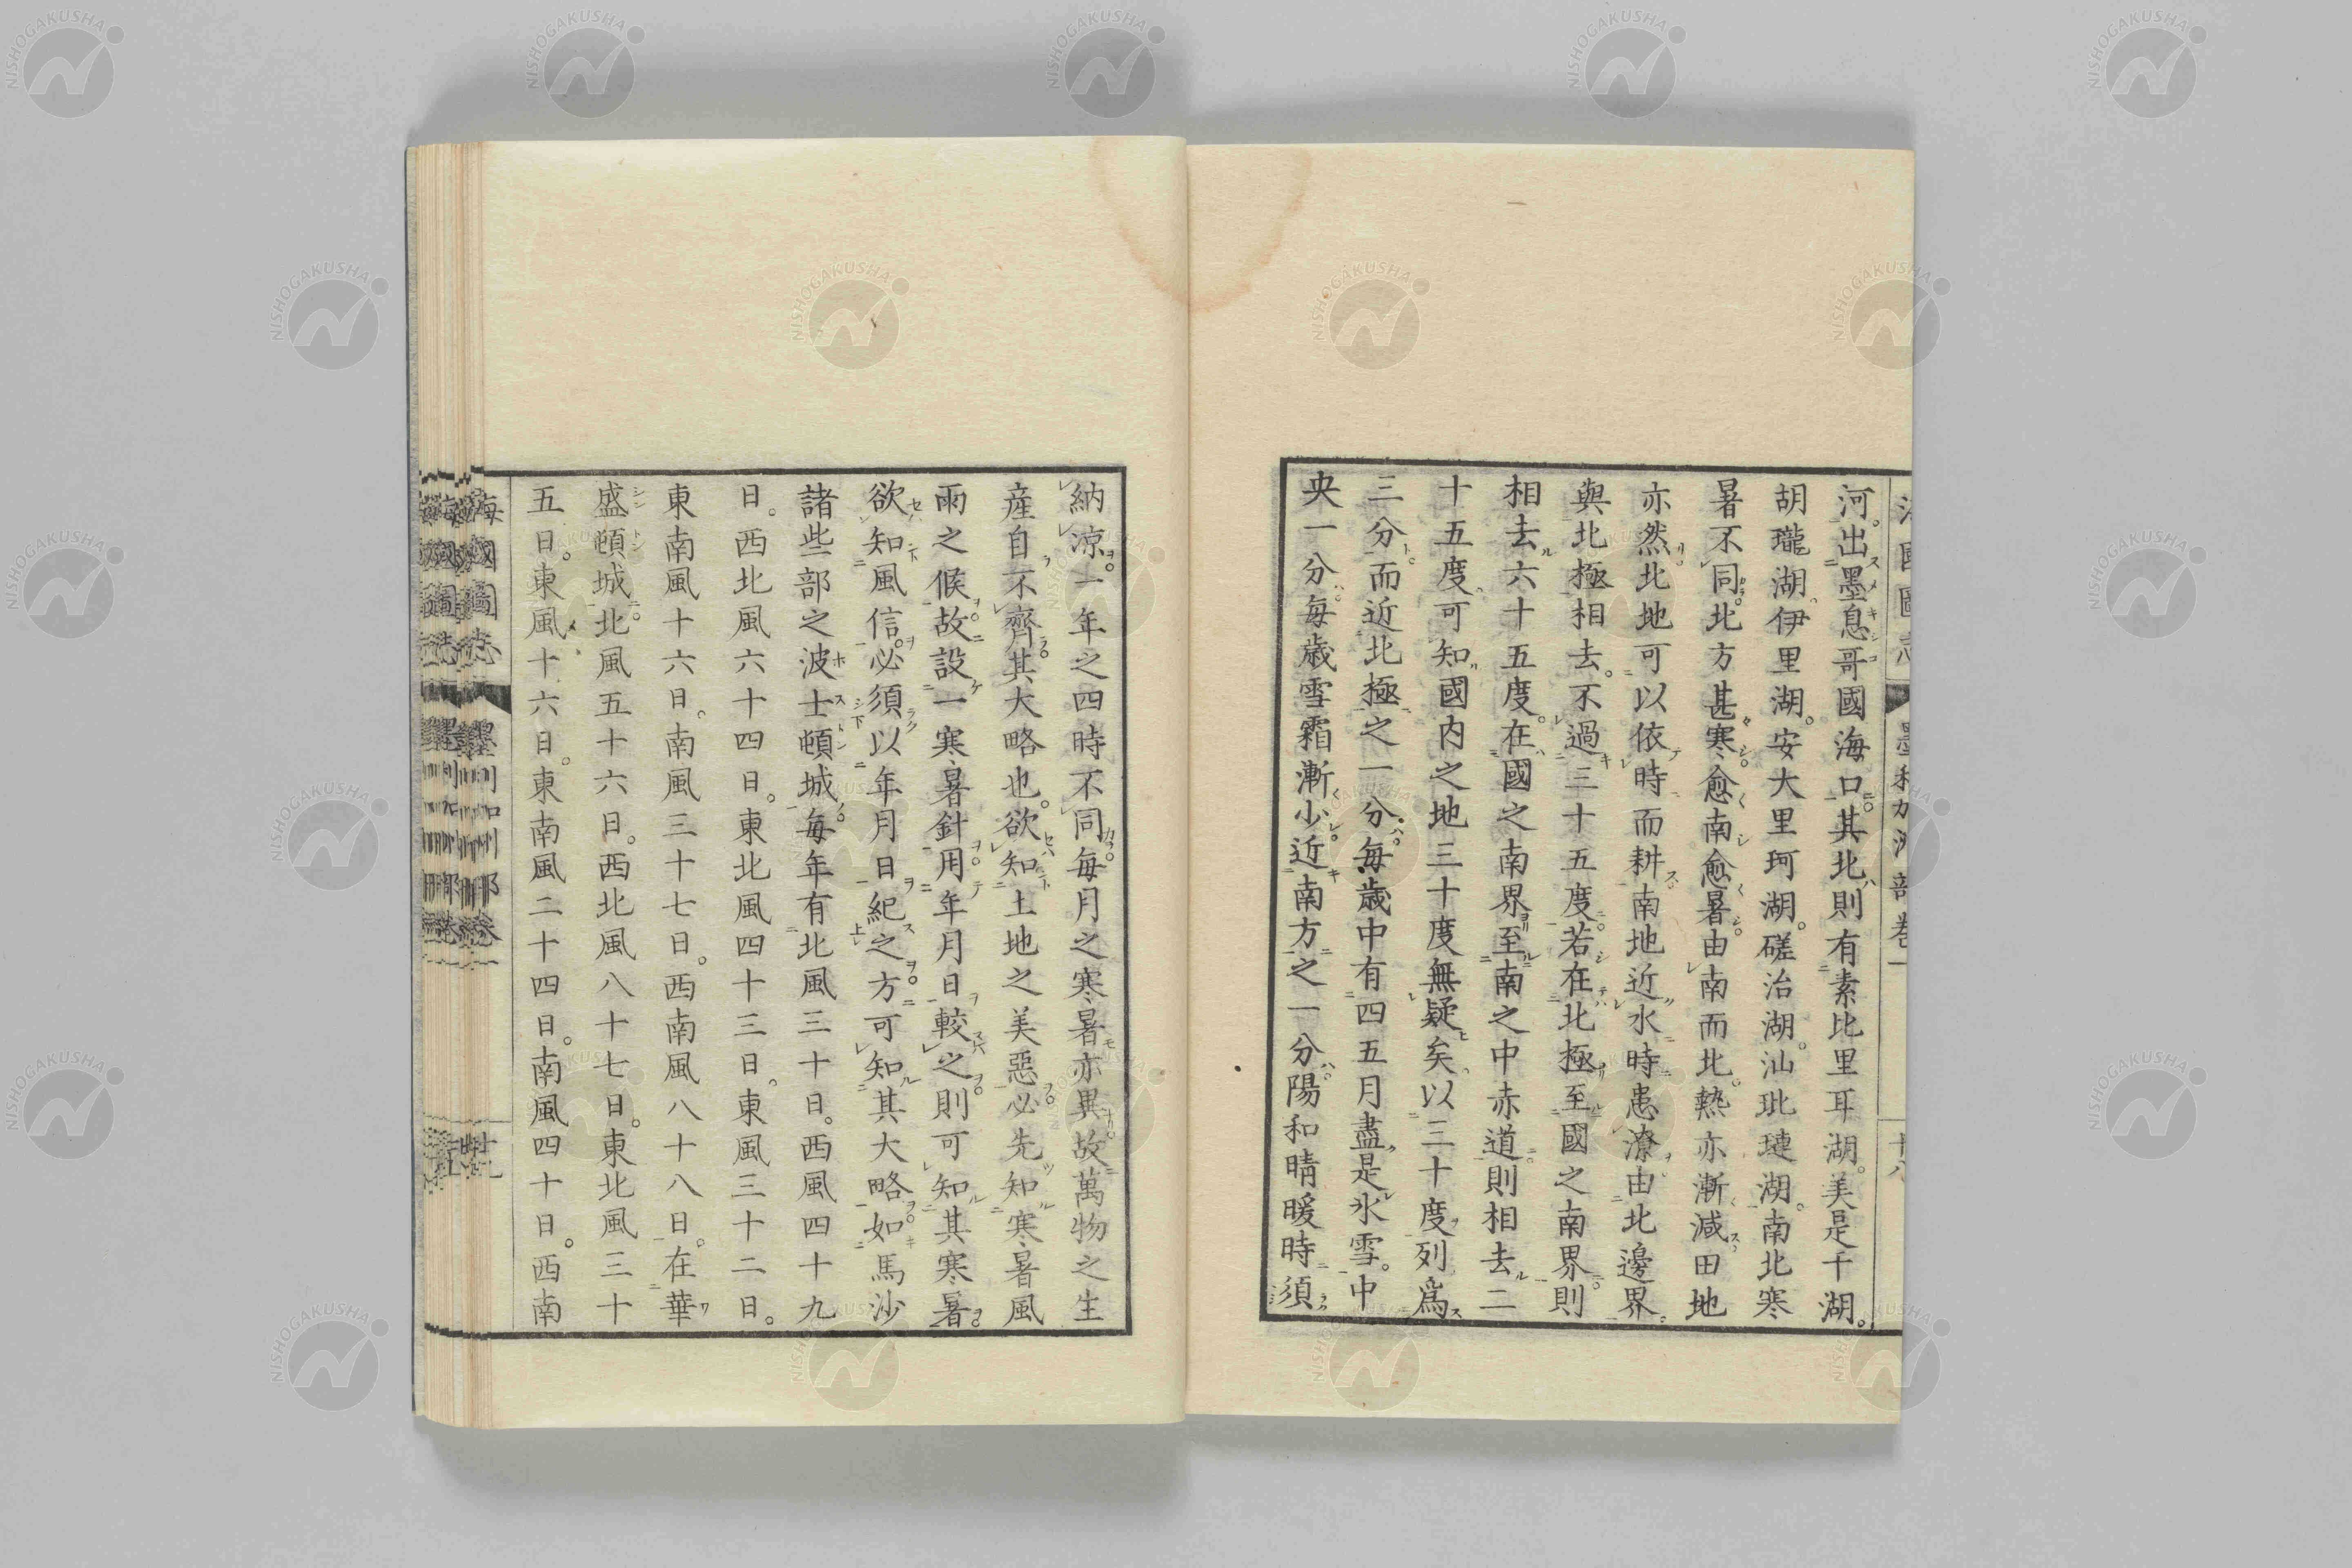 河。出墨息哥國海口。其北則有素比里耳湖。美是干湖。
胡瓏湖伊里湖。安大里珂湖。磋治湖。汕玭璉湖。南北寒
暑不同。北方甚寒。愈南愈暑。由南而北。熱亦漸減。田地
亦然。北地可以依時而耕。南地近水。時患潦。由北邊界
與北極相去。不過三十五度。若在北極至國之南界。則
相去六十五度。在國之南界至南之中赤道。則相去二
十五度可知國内之地三十度無疑矣以三十度列爲
三分。而近北極之一分。每歲中有四五月盡是氷雪。中
央一分。每歲雪霜漸少。近南方之一分。陽和晴暖時須
納涼。一年之四時不同。每月之寒暑亦異。故萬物之生
産自不齊。其大略也。欲知土地之美惡。必先知寒暑風
雨之候。故設一寒暑針。用年月日較之。則可知其寒暑。
欲知風信。必須以年月日紀之。方可知其大略。如馬沙
諸些部之波士頓城。每年有北風三十日。西風四十九
日。西北風六十四日。東北風四十三日。東風三十二日。
東南風十六日。南風三十七日。西南風八十八日。在華
盛頓城。北風五十六日。西北風八十七日。東北風三十
五日。東風十六日。東南風二十四日。南風四十日。西南
海國圖志
墨利加洲部卷一
NISHOGAKUSHA